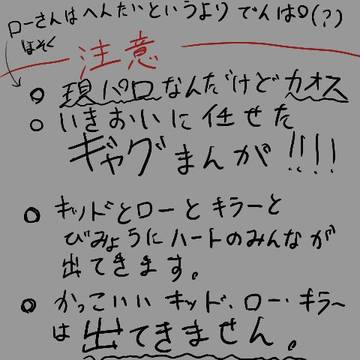 ローさんはへんたいというよりでんぱ(?)
ほそく
注意
○ 現パロなんだけどカオス
○ いきおいに任せた
ギャグまんが!!!!
○ キッドとローとキラーと
びみょうにハートのみんなが
出てきます。
○ かっこいいキッド・ロー・キラー
は出てきません。